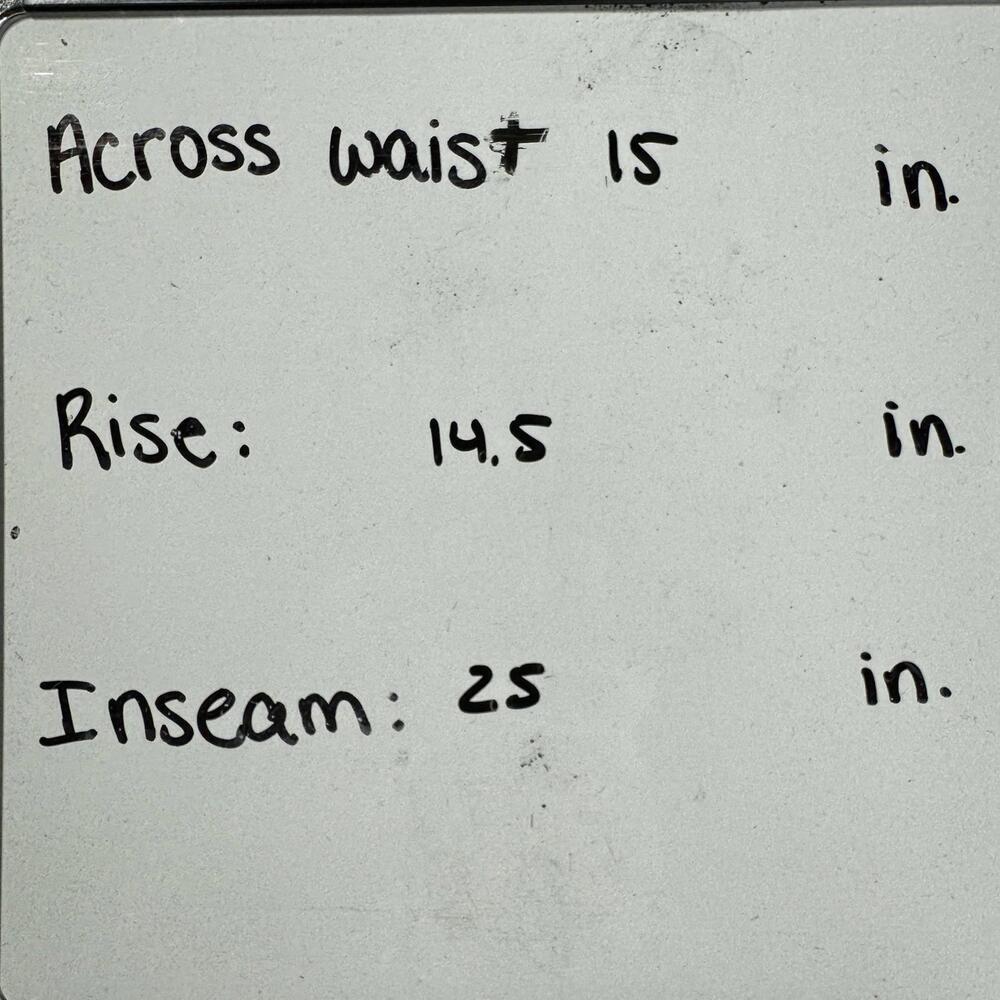 Across waist 15 in.
Rise: 14.5 in.
Inseam: 25 in.